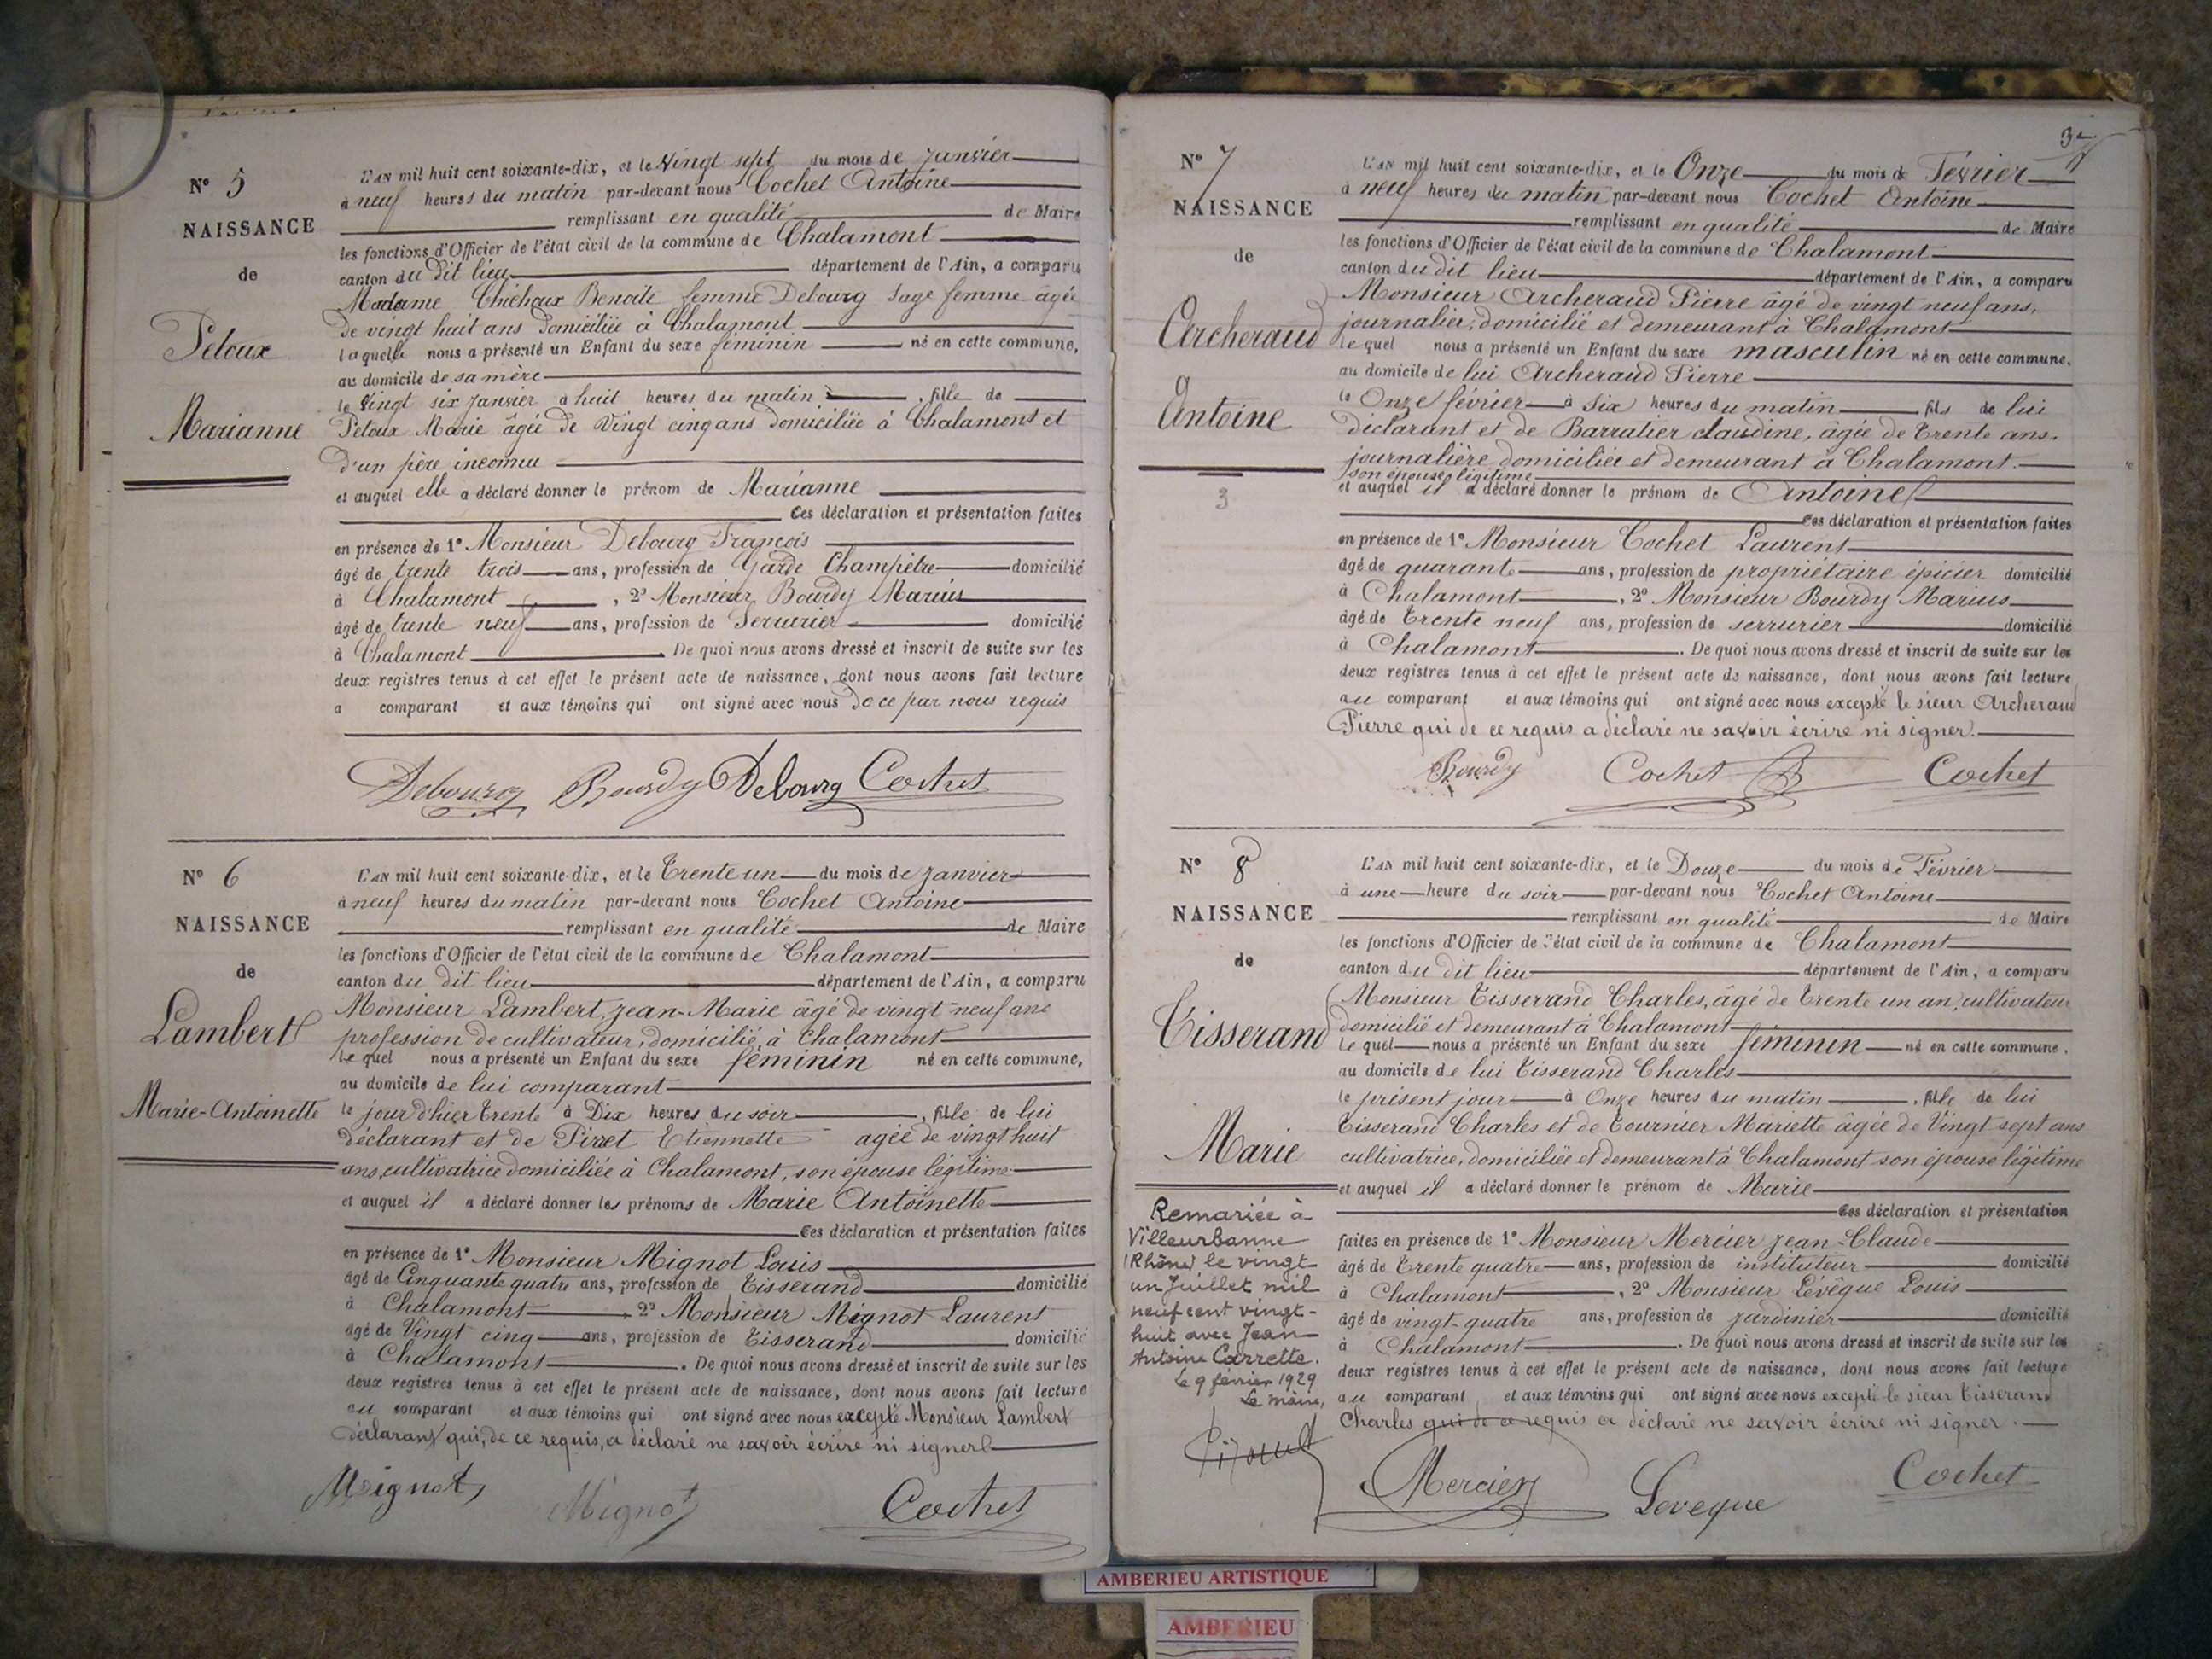 N° 5
NAISSANCE
de
Peloux
Marianne
L'AN mil huit cent soixante-dix, et le Vingt sept du mois de Janvier
à neuf heures du matin par-devant nous Cochet Antoine
remplissant en qualité de Maire
les fonctions d'Officier de l'état civil de la commune de Chalamont
canton du dit lieu département de l'Ain, a comparu
Madame Chichoux Benoite femme Debourg Sage femme âgée
de vingt huit ans domiciliée à Chalamont
laquelle nous a présenté un Enfant du sexe féminin né en cette commune,
au domicile de sa mère
le Vingt six Janvier à huit heures du matin, fille de
Peloux Marie âgée de Vingt cinq ans domiciliée à Chalamont et
d'un père inconnu
et auquel elle a déclaré donner le prénom de Marianne
Ces déclaration et présentation faites
en présence de 1° Monsieur Debourg François
âgé de trente trois ans, profession de Garde Champêtre domicilié
à Chalamont, 2° Monsieur Bourdy Marius
âgé de trente neuf ans, profession de Serrurier domicilié
à Chalamont. De quoi nous avons dressé et inscrit de suite sur les
deux registres tenus à cet effet le présent acte de naissance, dont nous avons fait lecture
a comparant et aux témoins qui ont signé avec nous De ce par nous requis
Debourg Bourdy Debourg Cochet
N° 6
NAISSANCE
de
Lambert
Marie-Antoinette
L'AN mil huit cent soixante-dix, et le Trente un du mois de Janvier
à neuf heures du matin par-devant nous Cochet Antoine
remplissant en qualité de Maire
les fonctions d'Officier de l'état civil de la commune de Chalamont
canton du dit lieu département de l'Ain, a comparu
Monsieur Lambert, Jean-Marie âgé de vingt-neuf ans
profession de cultivateur, domicilié, à Chalamont
lequel nous a présenté un Enfant du sexe féminin né en cette commune,
au domicile de lui comparant
le jour d'hier Trente à Dix heures du soir, fille de lui
déclarant et de Etiennette agée de vingt huit
ans, cultivatrice domiciliée à Chalamont, son épouse légitime
et auquel il a déclaré donner les prénoms de Marie Antoinette
Ces déclaration et présentation faites
en présence de 1° Monsieur Mignot Louis
âgé de Cinquante quatre ans, profession de Tisserand domicilié
à Chalamont 2° Monsieur Mignot Laurent
âgé de Vingt cinq ans, profession de Tisserand domicilié
à Chalamont. De quoi nous avons dressé et inscrit de suite sur les
deux registres tenus à cet effet le présent acte de naissance, dont nous avons fait lecture
au comparant et aux témoins qui ont signé avec nous excepté Monsieur Lambert
déclarant qui, de ce requis, a déclaré ne savoir écrire ni signer
Mignot Mignot Cochet
3
N° 7
NAISSANCE
de
Archeraud
Antoine
3
L'AN mil huit cent soixante-dix, et le Onze du mois de Février
à neuf heures du matin par-devant nous Cochet Antoine
remplissant en qualité de Maire
les fonctions d'Officier de l'état civil de la commune de Chalamont
canton du dit lieu département de l'Ain, a comparu
Monsieur Archeraud Pierre âgé de vingt neuf ans,
journalier, domicilié et demeurant à Chalamont
lequel nous a présenté un Enfant du sexe masculin né en cette commune,
au domicile de lui Archeraud Pierre
le Onze février à six heures du matin fils de lui
déclarant et de Barratier claudine, âgée de Trente ans.
journalière domiciliée et demeurant à Chalamont.
son épouse légitime
et auquel il a déclaré donner le prénom de Antoine
Ces déclaration et présentation faites
en présence de 1° Monsieur Cochet Laurent
âgé de quarante ans, profession de propriétaire épicier domicilié
à Chalamont, 2° Monsieur Bourdy Marius
âgé de Trente neuf ans, profession de serrurier domicilié
à Chalamont. De quoi nous avons dressé et inscrit de suite sur les
deux registres tenus à cet effet le présent acte de naissance, dont nous avons fait lecture
au comparant et aux témoins qui ont signé avec nous excepté le sieur Archeraud
Pierre qui de ce requis a déclaré ne savoir écrire ni signer.
Bourdy Cochet Cochet
N° 8
NAISSANCE
de
Tisserand
Marie
Remariée à
Villeurbanne
(Rhône) le vingt-
un Juillet mil
neuf cent vingt-
huit avec Jean
Antoine Carrette.
Le 9 février 1929
Le maire,
L'AN mil huit cent soixante-dix, et le Douze du mois de Février
à une heure du soir par-devant nous Cochet Antoine
remplissant en qualité de Maire
les fonctions d'Officier de l'état civil de la commune de Chalamont
canton du dit lieu département de l'Ain, a comparu
Monsieur Tisserand Charles, âgé de Trente un an, cultivateur
domicilié et demeurant à Chalamont
lequel nous a présenté un Enfant du sexe féminin né en cette commune,
au domicile de lui Tisserand Charles
le présent jour à Onze heures du matin, fille de lui
Tisserand Charles et de Tournier Mariette âgée de Vingt sept ans
cultivatrice, domiciliée et demeurant à Chalamont son épouse légitime
et auquel il a déclaré donner le prénom de Marie
Ces déclaration et présentation
faites en présence de 1° Monsieur Mercier Jean-Claude
âgé de Trente quatre ans, profession de instituteur domicilié
à Chalamont, 2° Monsieur Lévêque Louis
âgé de vingt-quatre ans, profession de jardinier domicilié
à Chalamont. De quoi nous avons dressé et inscrit de suite sur les
deux registres tenus à cet effet le présent acte de naissance, dont nous avons fait lecture
au comparant et aux témoins qui ont signé avec nous excepté le sieur Tisserand
Charles qui de ce requis a déclaré ne savoir écrire ni signer.
Mercier Leveque Cochet
AMBERIEU ARTISTIQUE
AMBERIEU